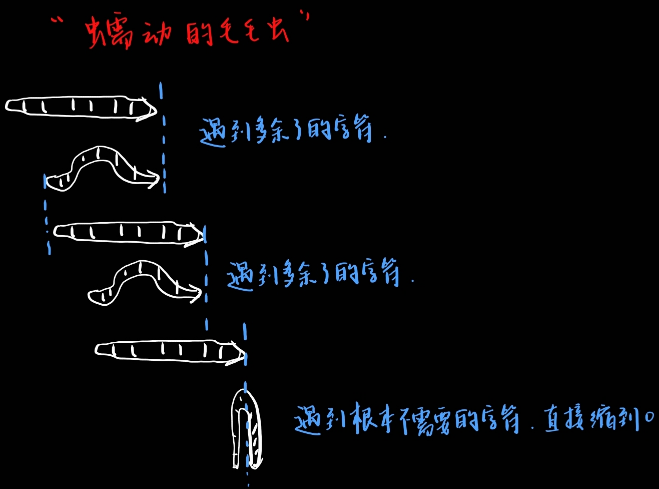 “蠕动的毛毛虫”
遇到多余了的字符.
遇到多余了的字符.
遇到根本不需要的字符.直接缩到0